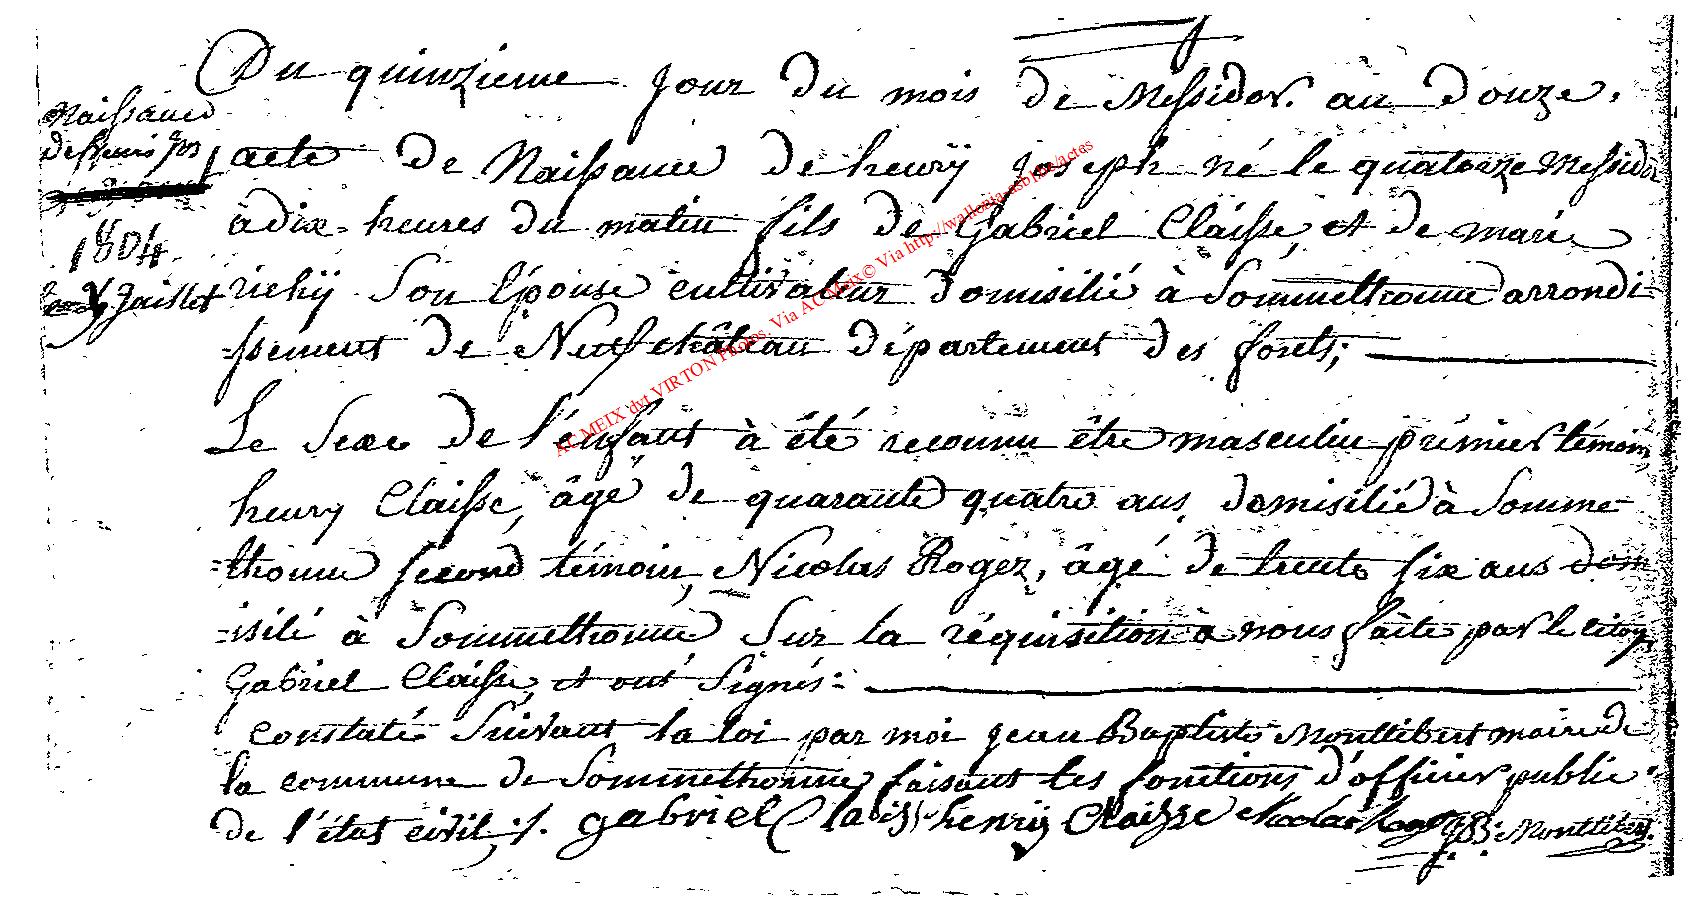 Du quinzieme jour du mois de Messidor. an douze,
Naissance
de henri jos
1804
3 juillet
acte de Naissance de henrÿ joseph né le quatorze Messidor
à dix=heures du matin fils de Gabriel Claisse, et de marie
richÿ son Épouse cultivateur domisilié à Sommethonne arrondi
=ssement de Neufchâteau département des forets;
Le Sexe de l'énfant à été reconnu être masculin prémier témoin,
henry Claisse, âgé de quarante quatre ans, domisilié à Somme=
=thonne second témoin, Nicolas Rogez, âgé de trente six ans dom
=isilé à Sommethonne, Sur la réquisition à nous faite par le citoy
Gabriel Claisse, et ont Signés:
constaté Suivant la loi par moi jean Baptiste Montlibert maire de
la commune de Sommethonne, faisant les fonctions d'officier public
de l'état civil, ./. gabriel Claiss henrÿ Claisse Nicolas Rogez JB: Montlibert.
AC MEIX dvt VIRTON Photos. Via AC Meix© Via http://wallonia-asbl.be/actes